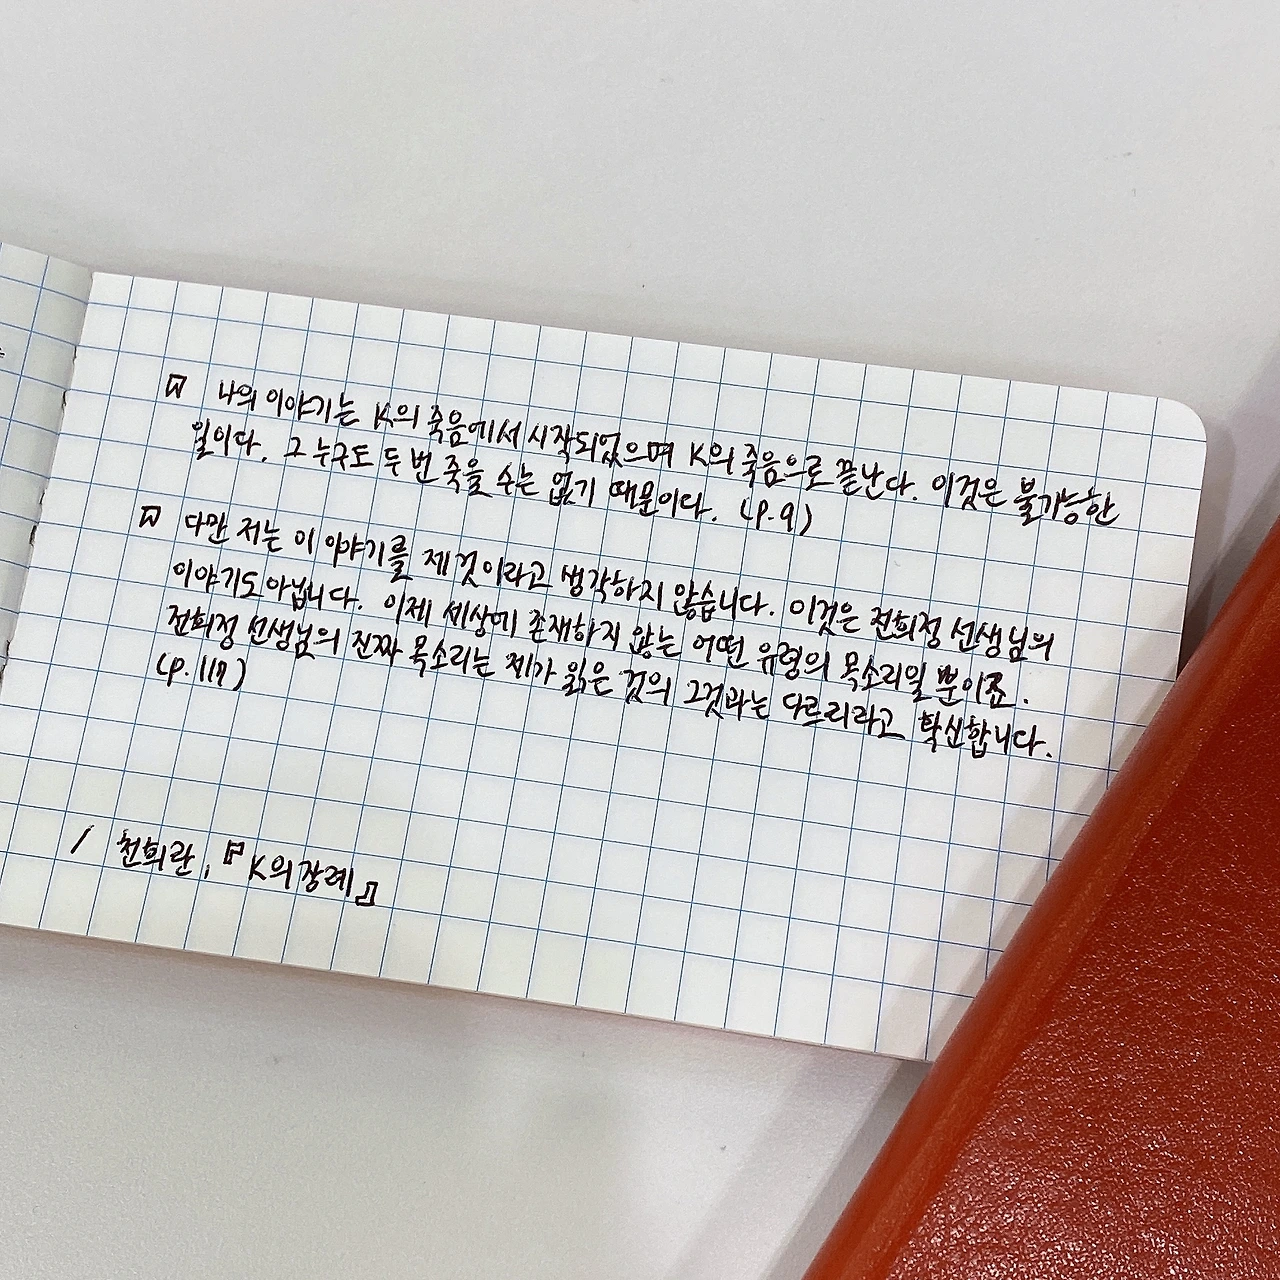 나의 이야기는 K의 죽음에서 시작되었으며 K의 죽음으로 끝난다. 이것은 불가능한
일이다. 그 누구도 두 번 죽을 수는 없기 때문이다. (p.9)
다만 저는 이 이야기를 제 것이라고 생각하지 않습니다. 이것은 전희정 선생님의
이야기도 아닙니다. 이제 세상에 존재하지 않는 어떤 유령의 목소리일 뿐이죠.
전희정 선생님의 진짜 목소리는 제가 읽은 것의 그것과는 다르리라고 확신합니다.
(p.117)
/ 천희란, 『K의 장례』